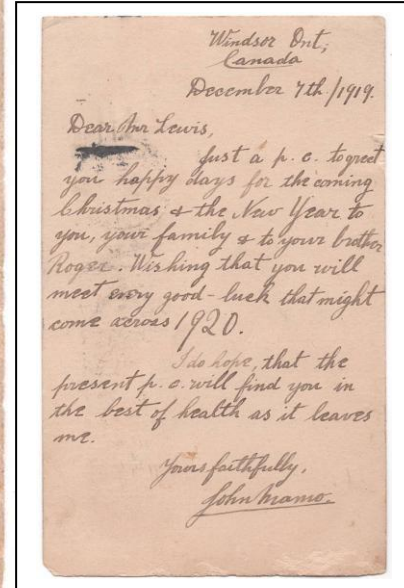 Windsor Ont,
Canada
December 7th/1919.
Dear Mr Lewis,
Just a p. c. to greet
you happy days for the coming
Christmas & the New Year to
you, your family & to your brother
Roger. Wishing that you will
meet every good-luck that might
come across 1920.
I do hope, that the
present p. c. will find you in
the best of health as it leaves
me.
Yours faithfully,
John Mamo.